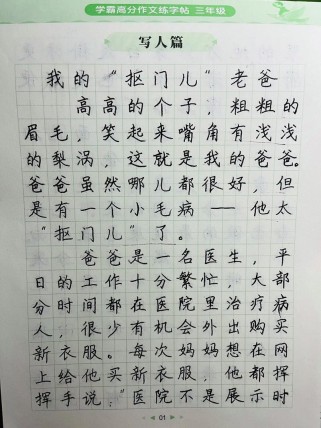 学霸高分作文练字帖 三年级
写人篇
我的“抠门儿”老爸
高高的个子，粗粗的
眉毛，笑起来嘴角有浅浅
的梨涡，这就是我的爸爸。
爸爸虽然哪儿都很好，但
是有一个小毛病——他太
“抠门儿”了。
爸爸是一名医生，平
日的工作十分繁忙，大部
分时间都在医院里治疗病
人，很少有机会外出购买
新衣服。每次妈妈想在网
上给他买新衣服，他都挥
挥手说：“医院不是展示时
01